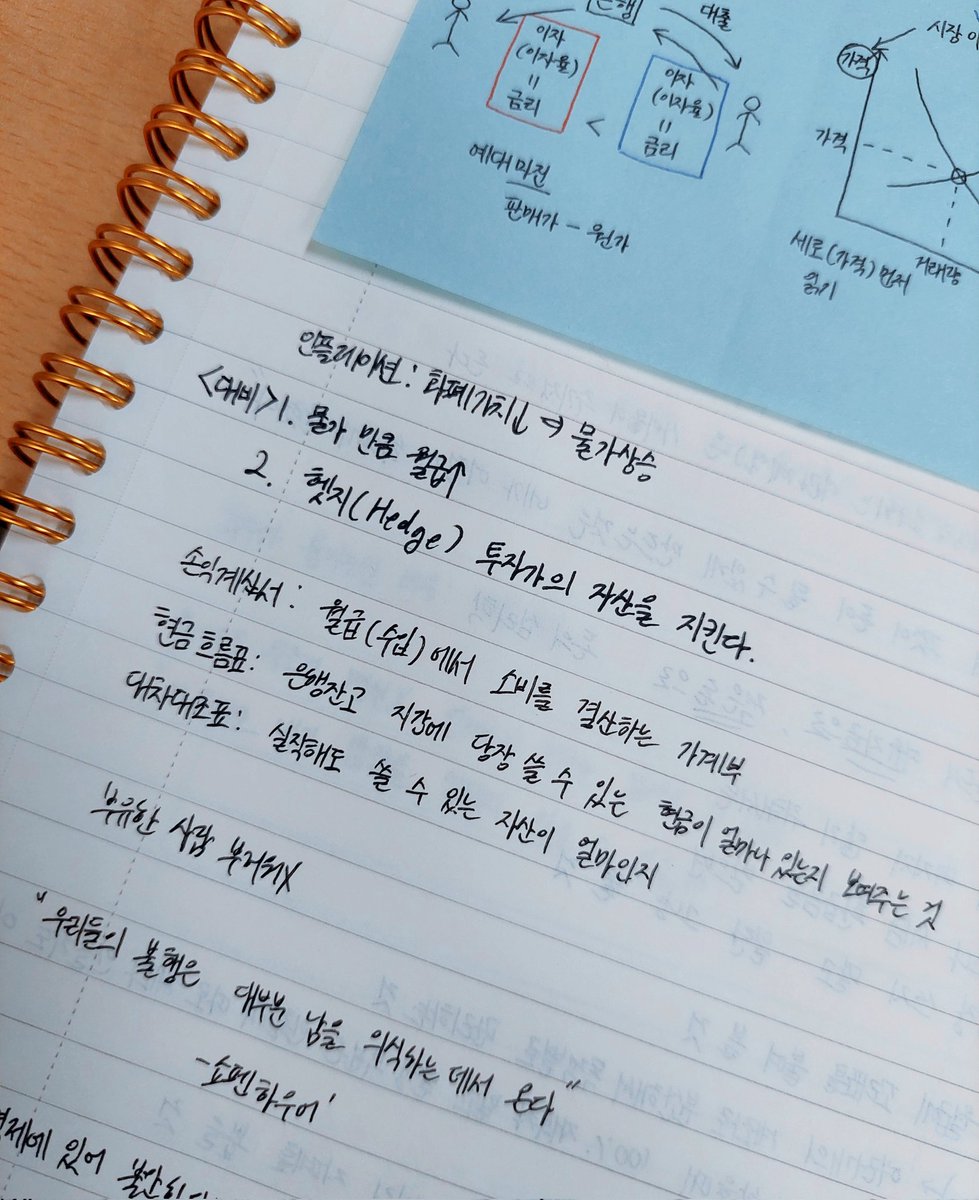 은행
대출
이자
(이자율)
=
금리
<
이자
(이자율)
=
금리
예대마진
판매가 - 원가
시장
가격
가격
세로(가격) 먼저
읽기
거래량
인플레이션 : 화폐가치↓ → 물가상승
<대비> 1. 물가 만큼 월급↑
2. 헷지(Hedge) 투자가의 자산을 지킨다.
손익계산서 : 월급(수입)에서 소비를 결산하는 가계부
현금흐름표 : 은행잔고 지갑에 당장 쓸 수 있는 현금이 얼마나 있는지 보여주는 것
대차대조표 : 실직해도 쓸 수 있는 자산이 얼마인지
부유한 사람 부러워X
"우리들의 불행은 대부분 남을 의식하는 데서 온다"
-쇼펜하우어'
있어